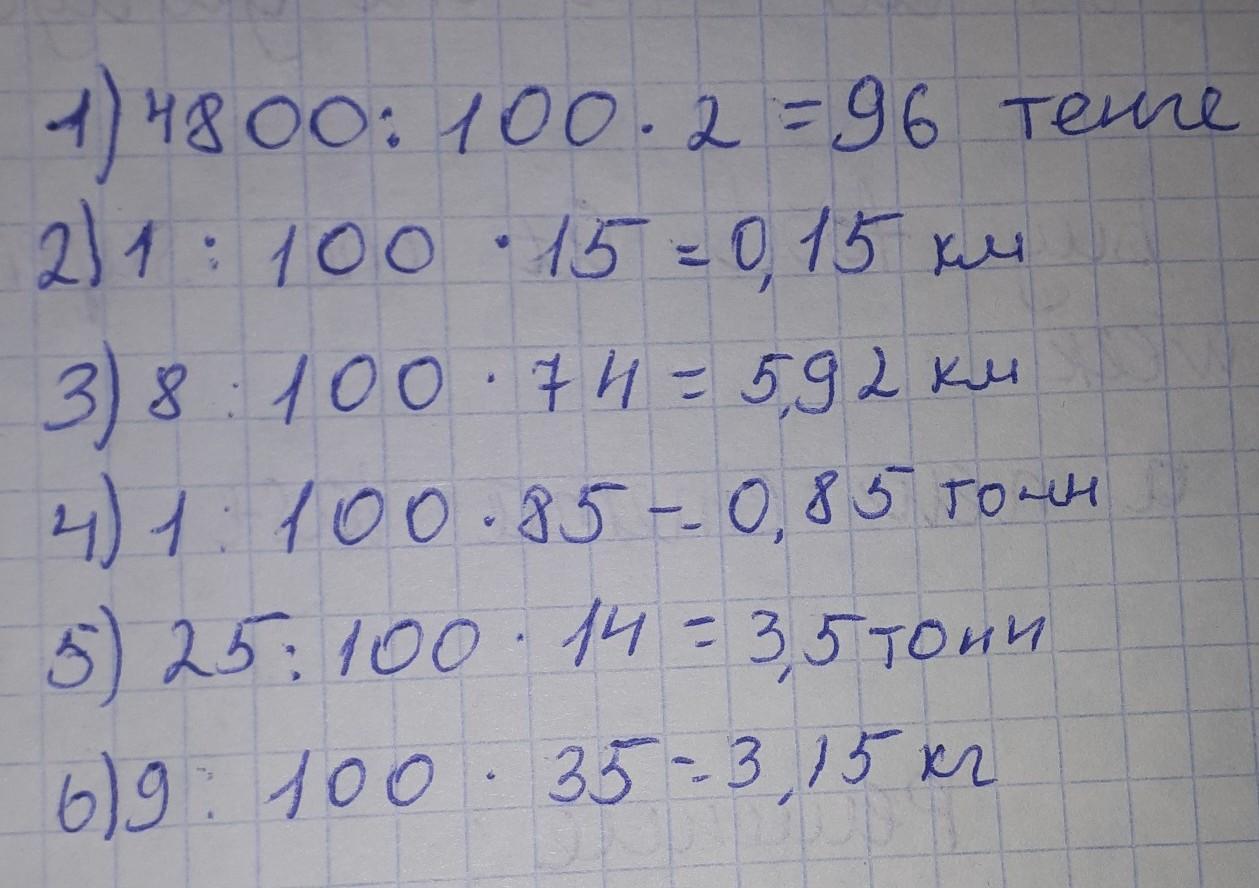 1) 4800 : 100 · 2 = 96 тенге
2) 1 : 100 · 15 = 0,15 км
3) 8 : 100 · 74 = 5,92 км
4) 1 : 100 · 85 = 0,85 тонн
5) 25 : 100 · 14 = 3,5 тонн
6) 9 : 100 · 35 = 3,15 кг